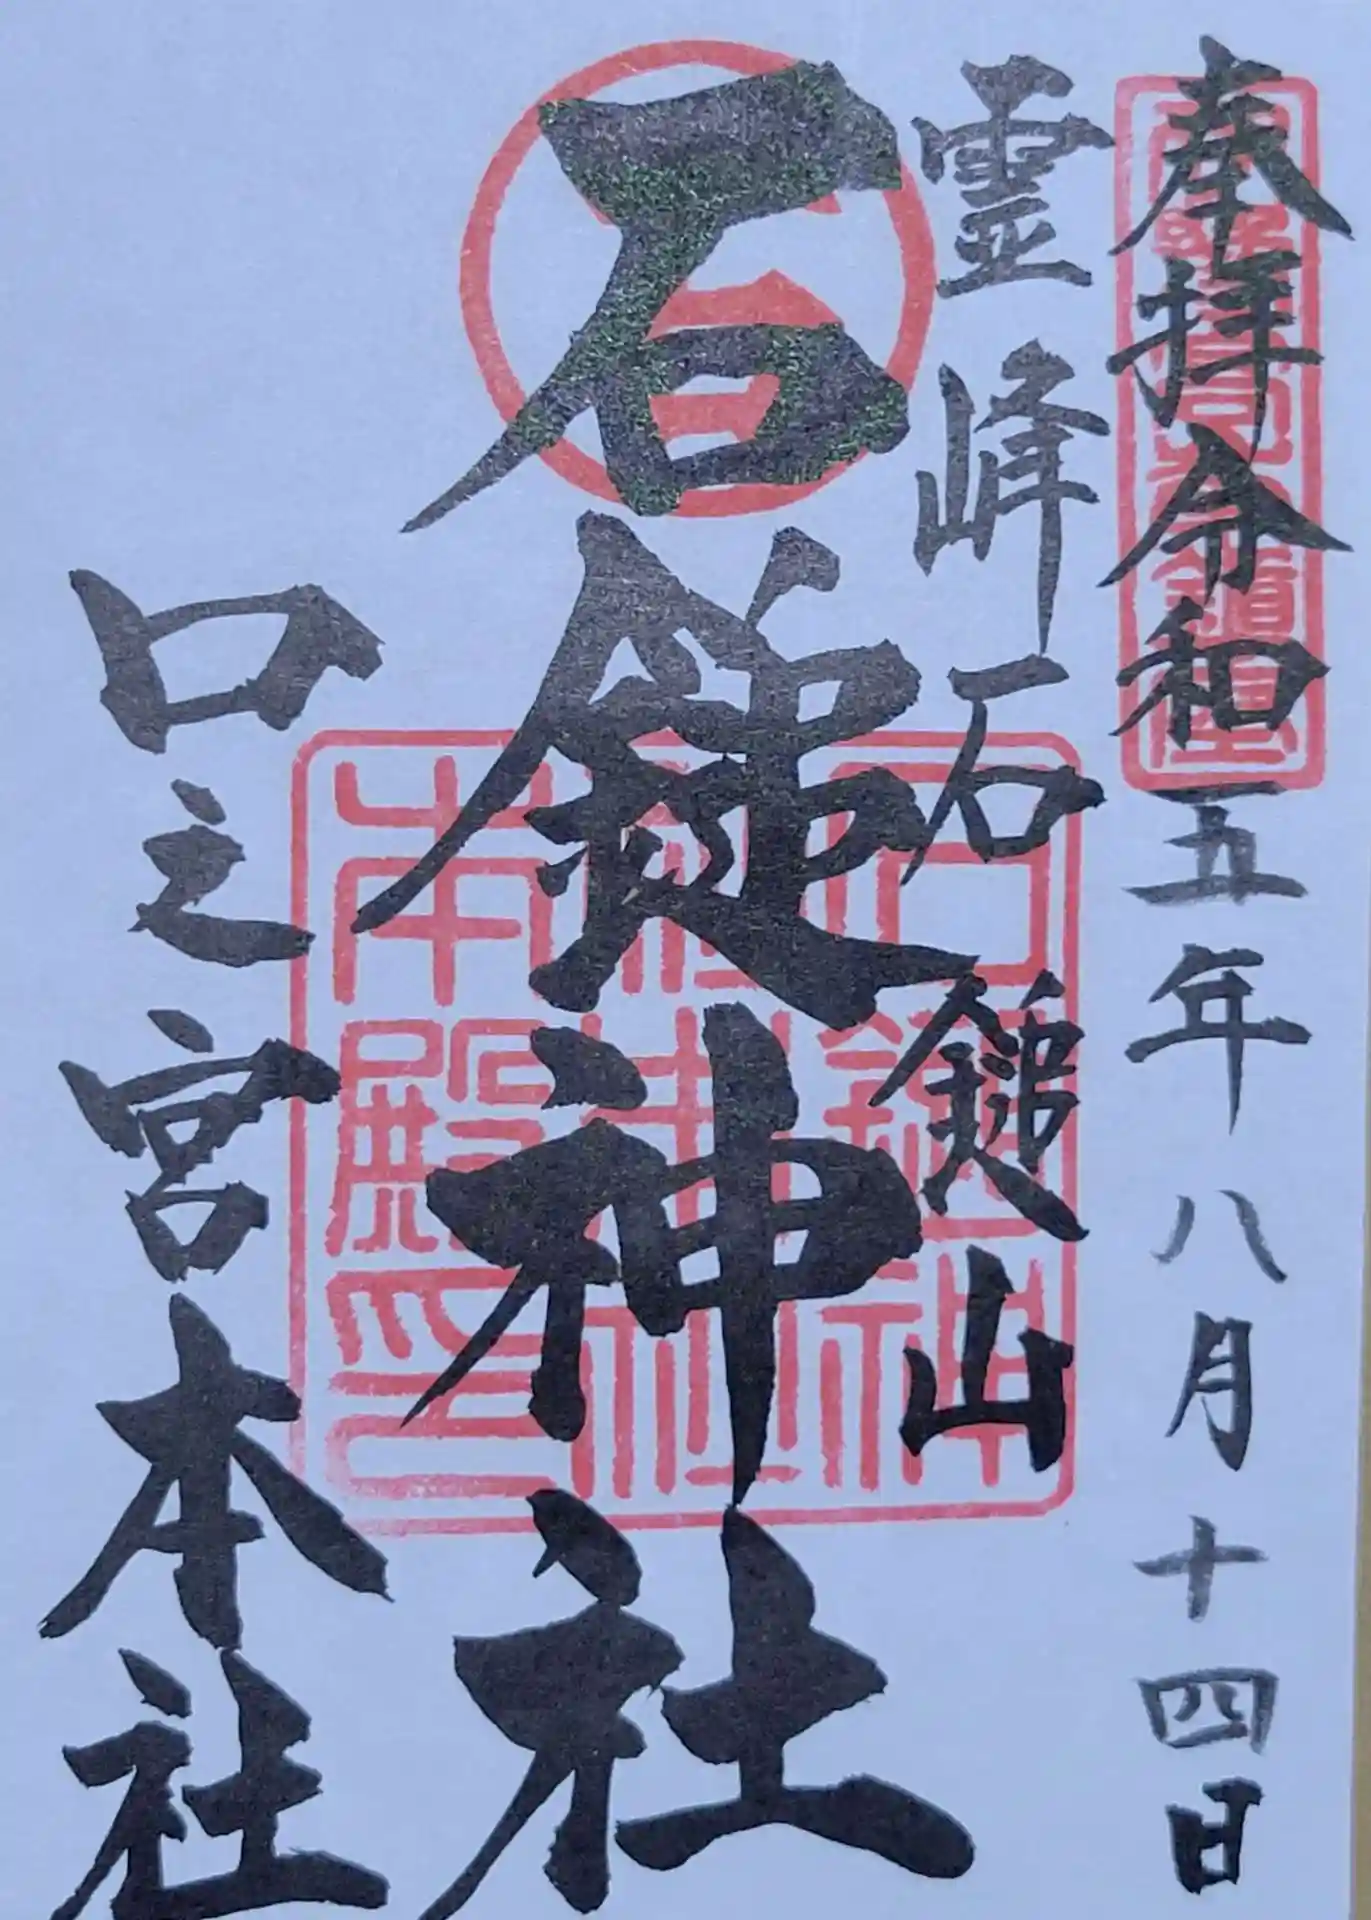 奉拝令和五年八月十四日
霊峰石鎚山
石鎚神社
口之宮本社
石鎚神社 本社 本殿印